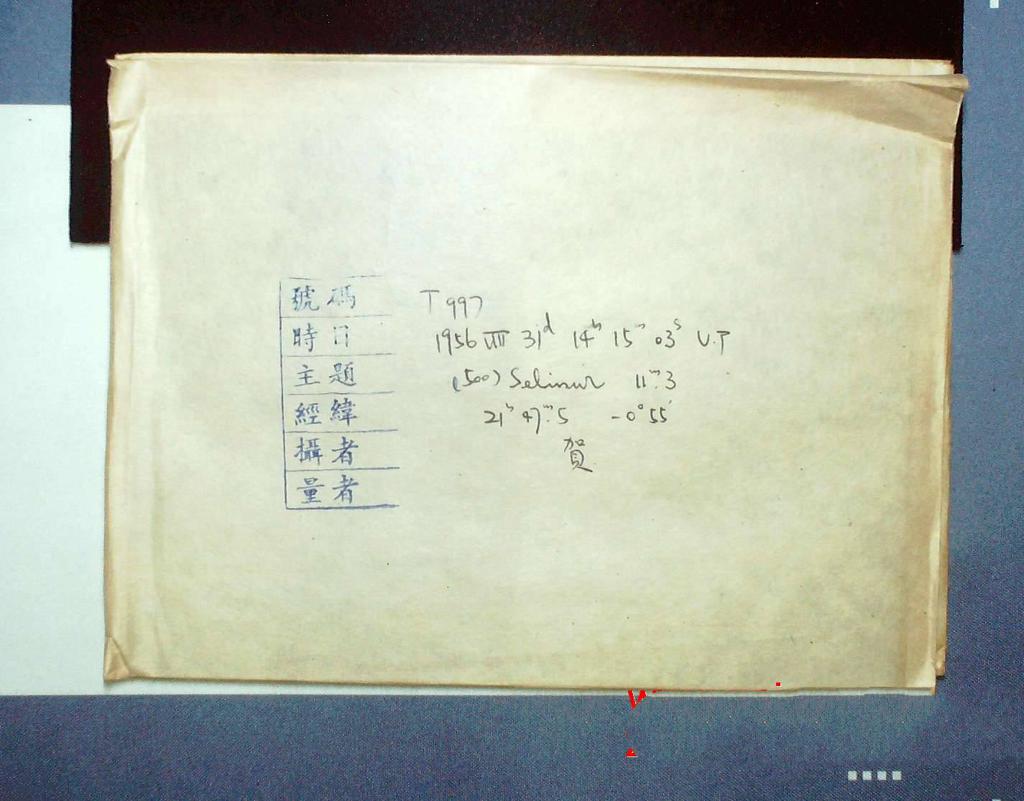 號碼 T 997
時日 1956 VIII 31d 14h 15m 03s U.T
主題 (500) Selinur 11m.3
經緯 21h 47m.5 -0°55'
攝者 賀
量者